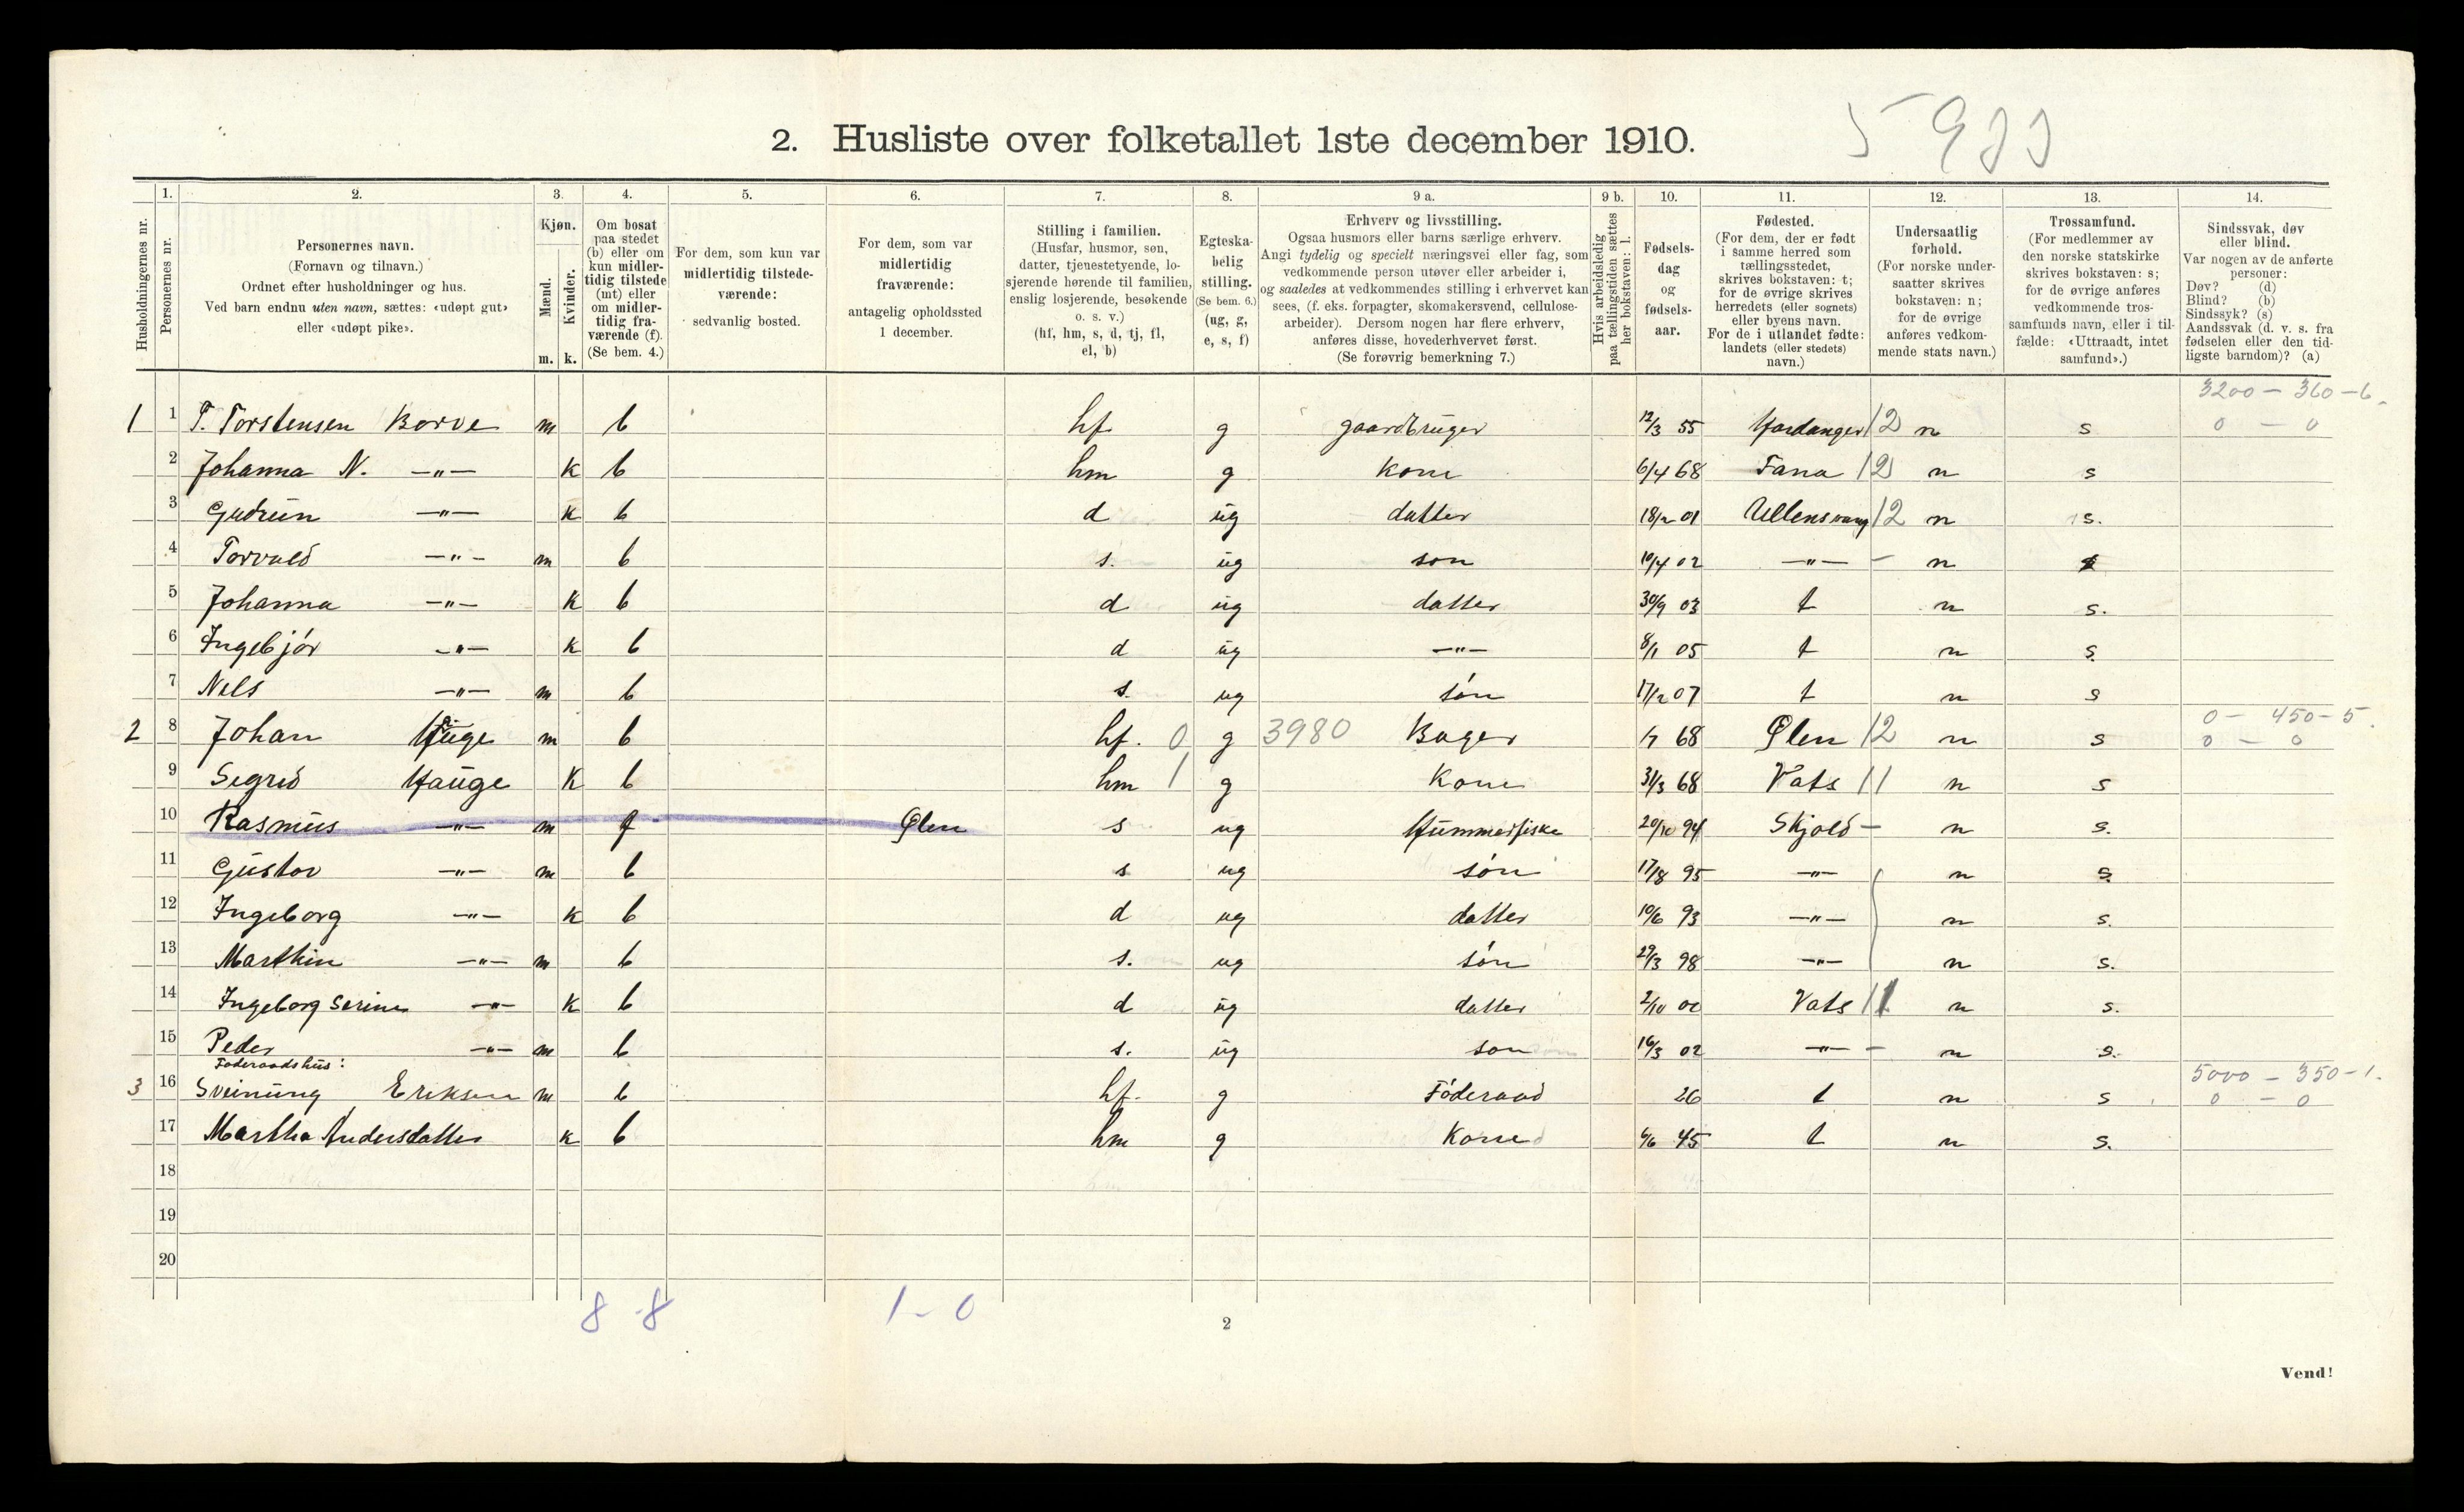 2. Husliste over folketallet 1ste december 1910.
1. 2. 3. 4. 5. 6. 7. 8. 9 a. 9 b. 10. 11. 12. 13. 14.
Husholdningernes nr.
Personernes nr.
Personernes navn.
(Fornavn og tilnavn.)
Ordnet efter husholdninger og hus.
Ved barn endnu uten navn, sættes: «udøpt gut»
eller «udøpt pike».
Kjøn.
Mænd.
Kvinder.
m. k.
Om bosat
paa stedet
(b) eller om
kun midler-
tidig tilstede
(mt) eller
om midler-
tidig fra-
værende (f).
(Se bem. 4.)
For dem, som kun var
midlertidig tilstede-
værende:
sedvanlig bosted.
For dem, som var
midlertidig
fraværende:
antagelig opholdssted
1 december.
Stilling i familien.
(Husfar, husmor, søn,
datter, tjenestetyende, lo-
sjerende hørende til familien,
enslig losjerende, besøkende
o. s. v.)
(hf, hm, s, d, tj, fl,
el, b)
Egteska-
belig
stilling.
(Se bem. 6.)
(ug, g,
e, s, f)
Erhverv og livsstilling.
Ogsaa husmors eller barns særlige erhverv.
Angi tydelig og specielt næringsvei eller fag, som
vedkommende person utøver eller arbeider i,
og saaledes at vedkommendes stilling i erhvervet kan
sees, (f. eks. forpagter, skomakersvend, cellulose-
arbeider). Dersom nogen har flere erhverv,
anføres disse, hovederhvervet først.
(Se forøvrig bemerkning 7.)
Hvis arbeidsledig
paa tællingstiden sættes
her bokstaven: l.
Fødsels-
dag
og
fødsels-
aar.
Fødested.
(For dem, der er født
i samme herred som
tællingsstedet,
skrives bokstaven: t;
for de øvrige skrives
herredets (eller sognets)
eller byens navn.
For de i utlandet fødte:
landets (eller stedets)
navn.)
Undersaatlig
forhold.
(For norske under-
saatter skrives
bokstaven: n;
for de øvrige
anføres vedkom-
mende stats navn.)
Trossamfund.
(For medlemmer av
den norske statskirke
skrives bokstaven: s;
for de øvrige anføres
vedkommende tros-
samfunds navn, eller i til-
fælde: «Uttraadt, intet
samfund».)
Sindssvak, døv
eller blind.
Var nogen av de anførte
personer:
Døv? (d)
Blind? (b)
Sindssyk? (s)
Aandssvak (d. v. s. fra
fødselen eller den tid-
ligste barndom)? (a)
3200 – 360 – 6.
1 1 T. Torstensen Borve m b hf g gaardbruger 12/3 55 Hardanger 12 n s 0 – 0
2 Johanna N. —"— k b hm g kone 6/4 68 Fana 12 n s
3 Gudrun —"— k b d ug datter 18/2 01 Ullensvang 12 n s.
4 Torvald —"— m b s. ug son 10/4 02 —"— – n s
5 Johanna —"— k b d ug datter 30/9 03 t n s.
6 Ingebjør —"— k b d ug —"— 8/1 05 t n s.
7 Nels —"— m b s. ug søn 17/12 07 t n s
0 – 450 – 5.
2 8 Johan Hauge m b hf. 0 g 3980 Bager 68 Ølen 12 n s 0 – 0
9 Segrid Hauge k b hm 1 g Kone 31/3 68 Vats 11 n s
10 Rasmus —"— m f Ølen s ug Hummerfiske 20/10 94 Skjold – n s.
11 Gustav —"— m b s ug søn 17/8 95 —"— n s.
12 Ingeborg —"— k b d ug datter 10/6 93 —"— n s.
13 Marthin —"— m b s. ug søn 29/3 98 —"— n s.
14 Ingeborg Serine —"— k b d ug datter 2/10 00 Vats 11 n s.
15 Peder —"— m b s. ug son 16/3 02 —"— – n s.
Føderaadshus:
5000 – 350 – 1.
3 16 Sveinung Eriksen m b hf. g Føderaad 26 t n s 0 – 0
17 Martha Andersdatter k b hm g Kone 6/6 45 t n s.
18
19
20
8 - 8 1 - 0
2
Vend!